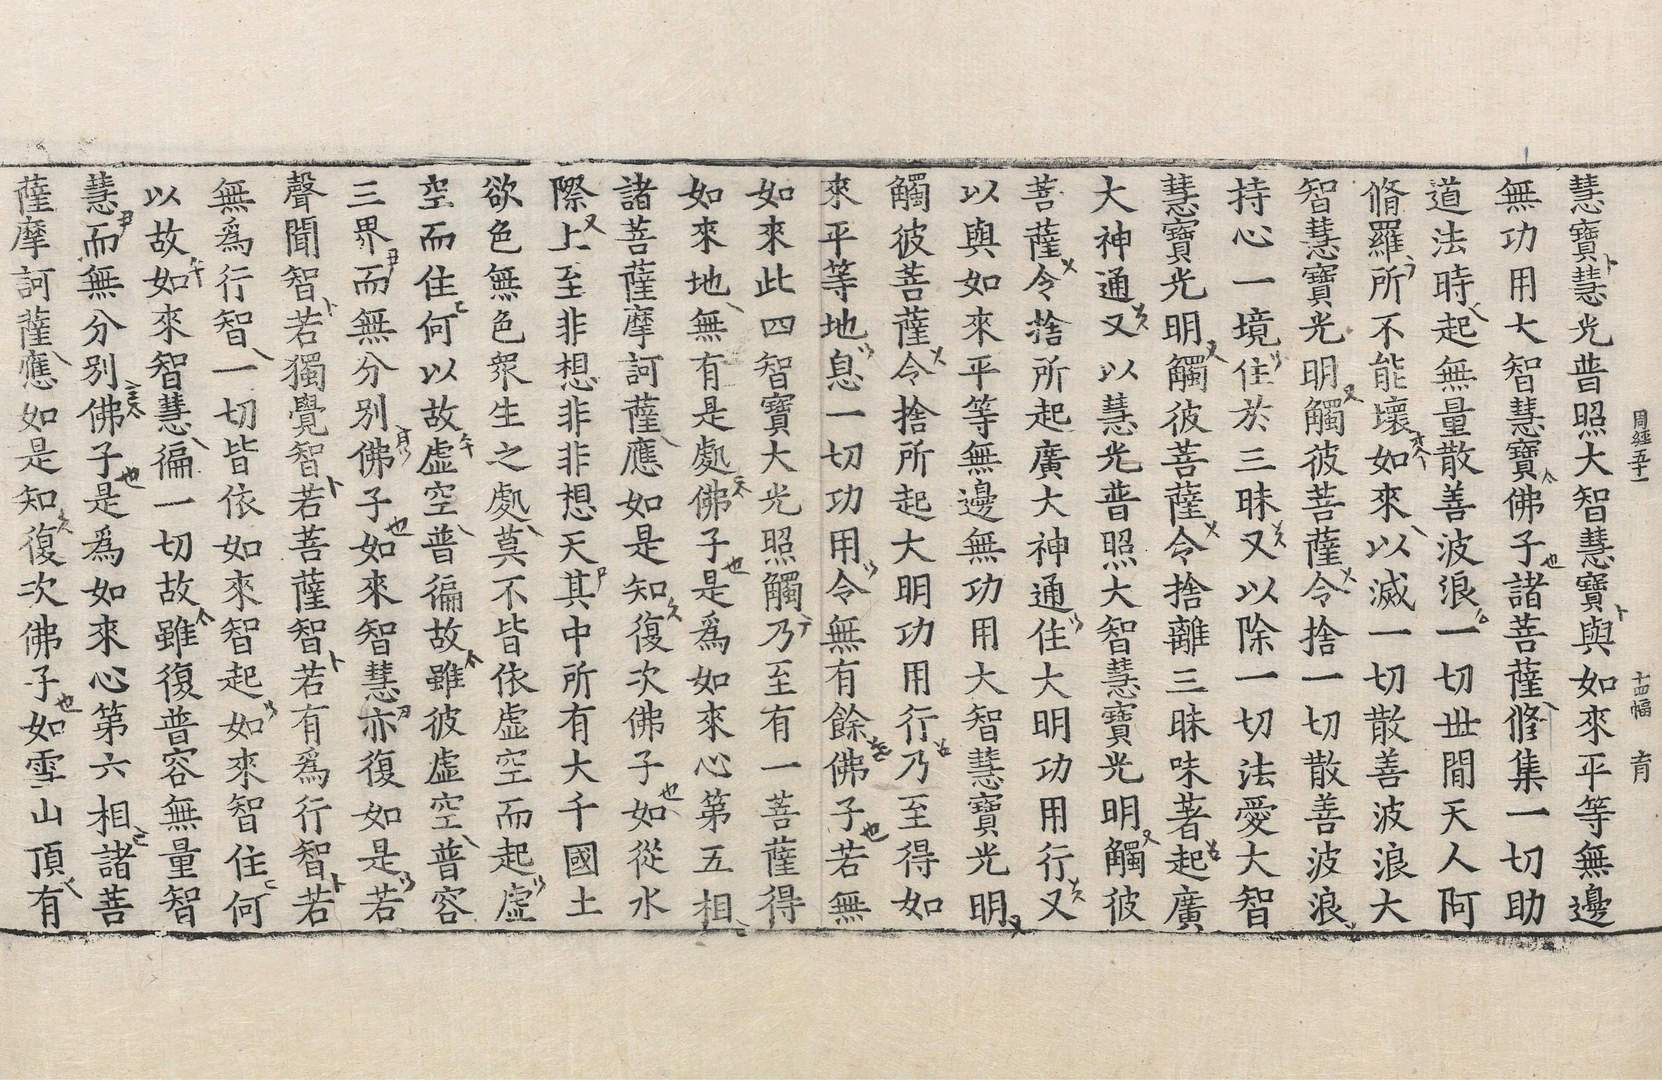 周經五十一　十四幅　育
慧寶慧光普照大智慧寶與如來平等無邊
無功用大智慧寶佛子諸菩薩脩集一切助
道法時起無量散善波浪一切世間天人阿
脩羅所不能壞如來以滅一切散善波浪大
智慧寶光明觸彼菩薩令捨一切散善波浪
持心一境住於三昧又以除一切法愛大智
慧寶光明觸彼菩薩令捨離三昧味著起廣
大神通又以慧光普照大智慧寶光明觸彼
菩薩令捨所起廣大神通住大明功用行又
以與如來平等無邊無功用大智慧寶光明
觸彼菩薩令捨所起大明功用行乃至得如
來平等地息一切功用令無有餘佛子若無
如來此四智寶大光照觸乃至有一菩薩得
如來地無有是處佛子是爲如來心第五相
諸菩薩摩訶薩應如是知復次佛子如從水
際上至非想非非想天其中所有大千國土
欲色無色眾生之處莫不皆依虛空而起虛
空而住何以故虛空普徧故雖彼虛空普容
三界而無分別佛子如來智慧亦復如是若
聲聞智若獨覺智若菩薩智若有爲行智若
無爲行智一切皆依如來智起如來智住何
以故如來智慧徧一切故雖復普容無量智
慧而無分別佛子是爲如來心第六相諸菩
薩摩訶薩應如是知復次佛子如雪山頂有